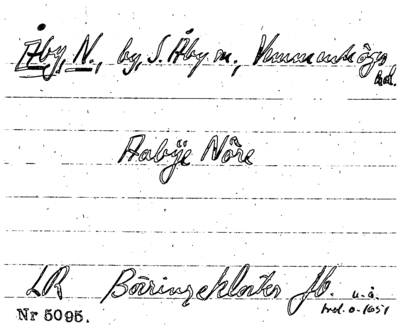 Åby, N., by, S. Åby sn., Vemmenhögs
hd.
Aabÿe Nöre
LR Börringekloster Jb. u.å.
Nr 5095.